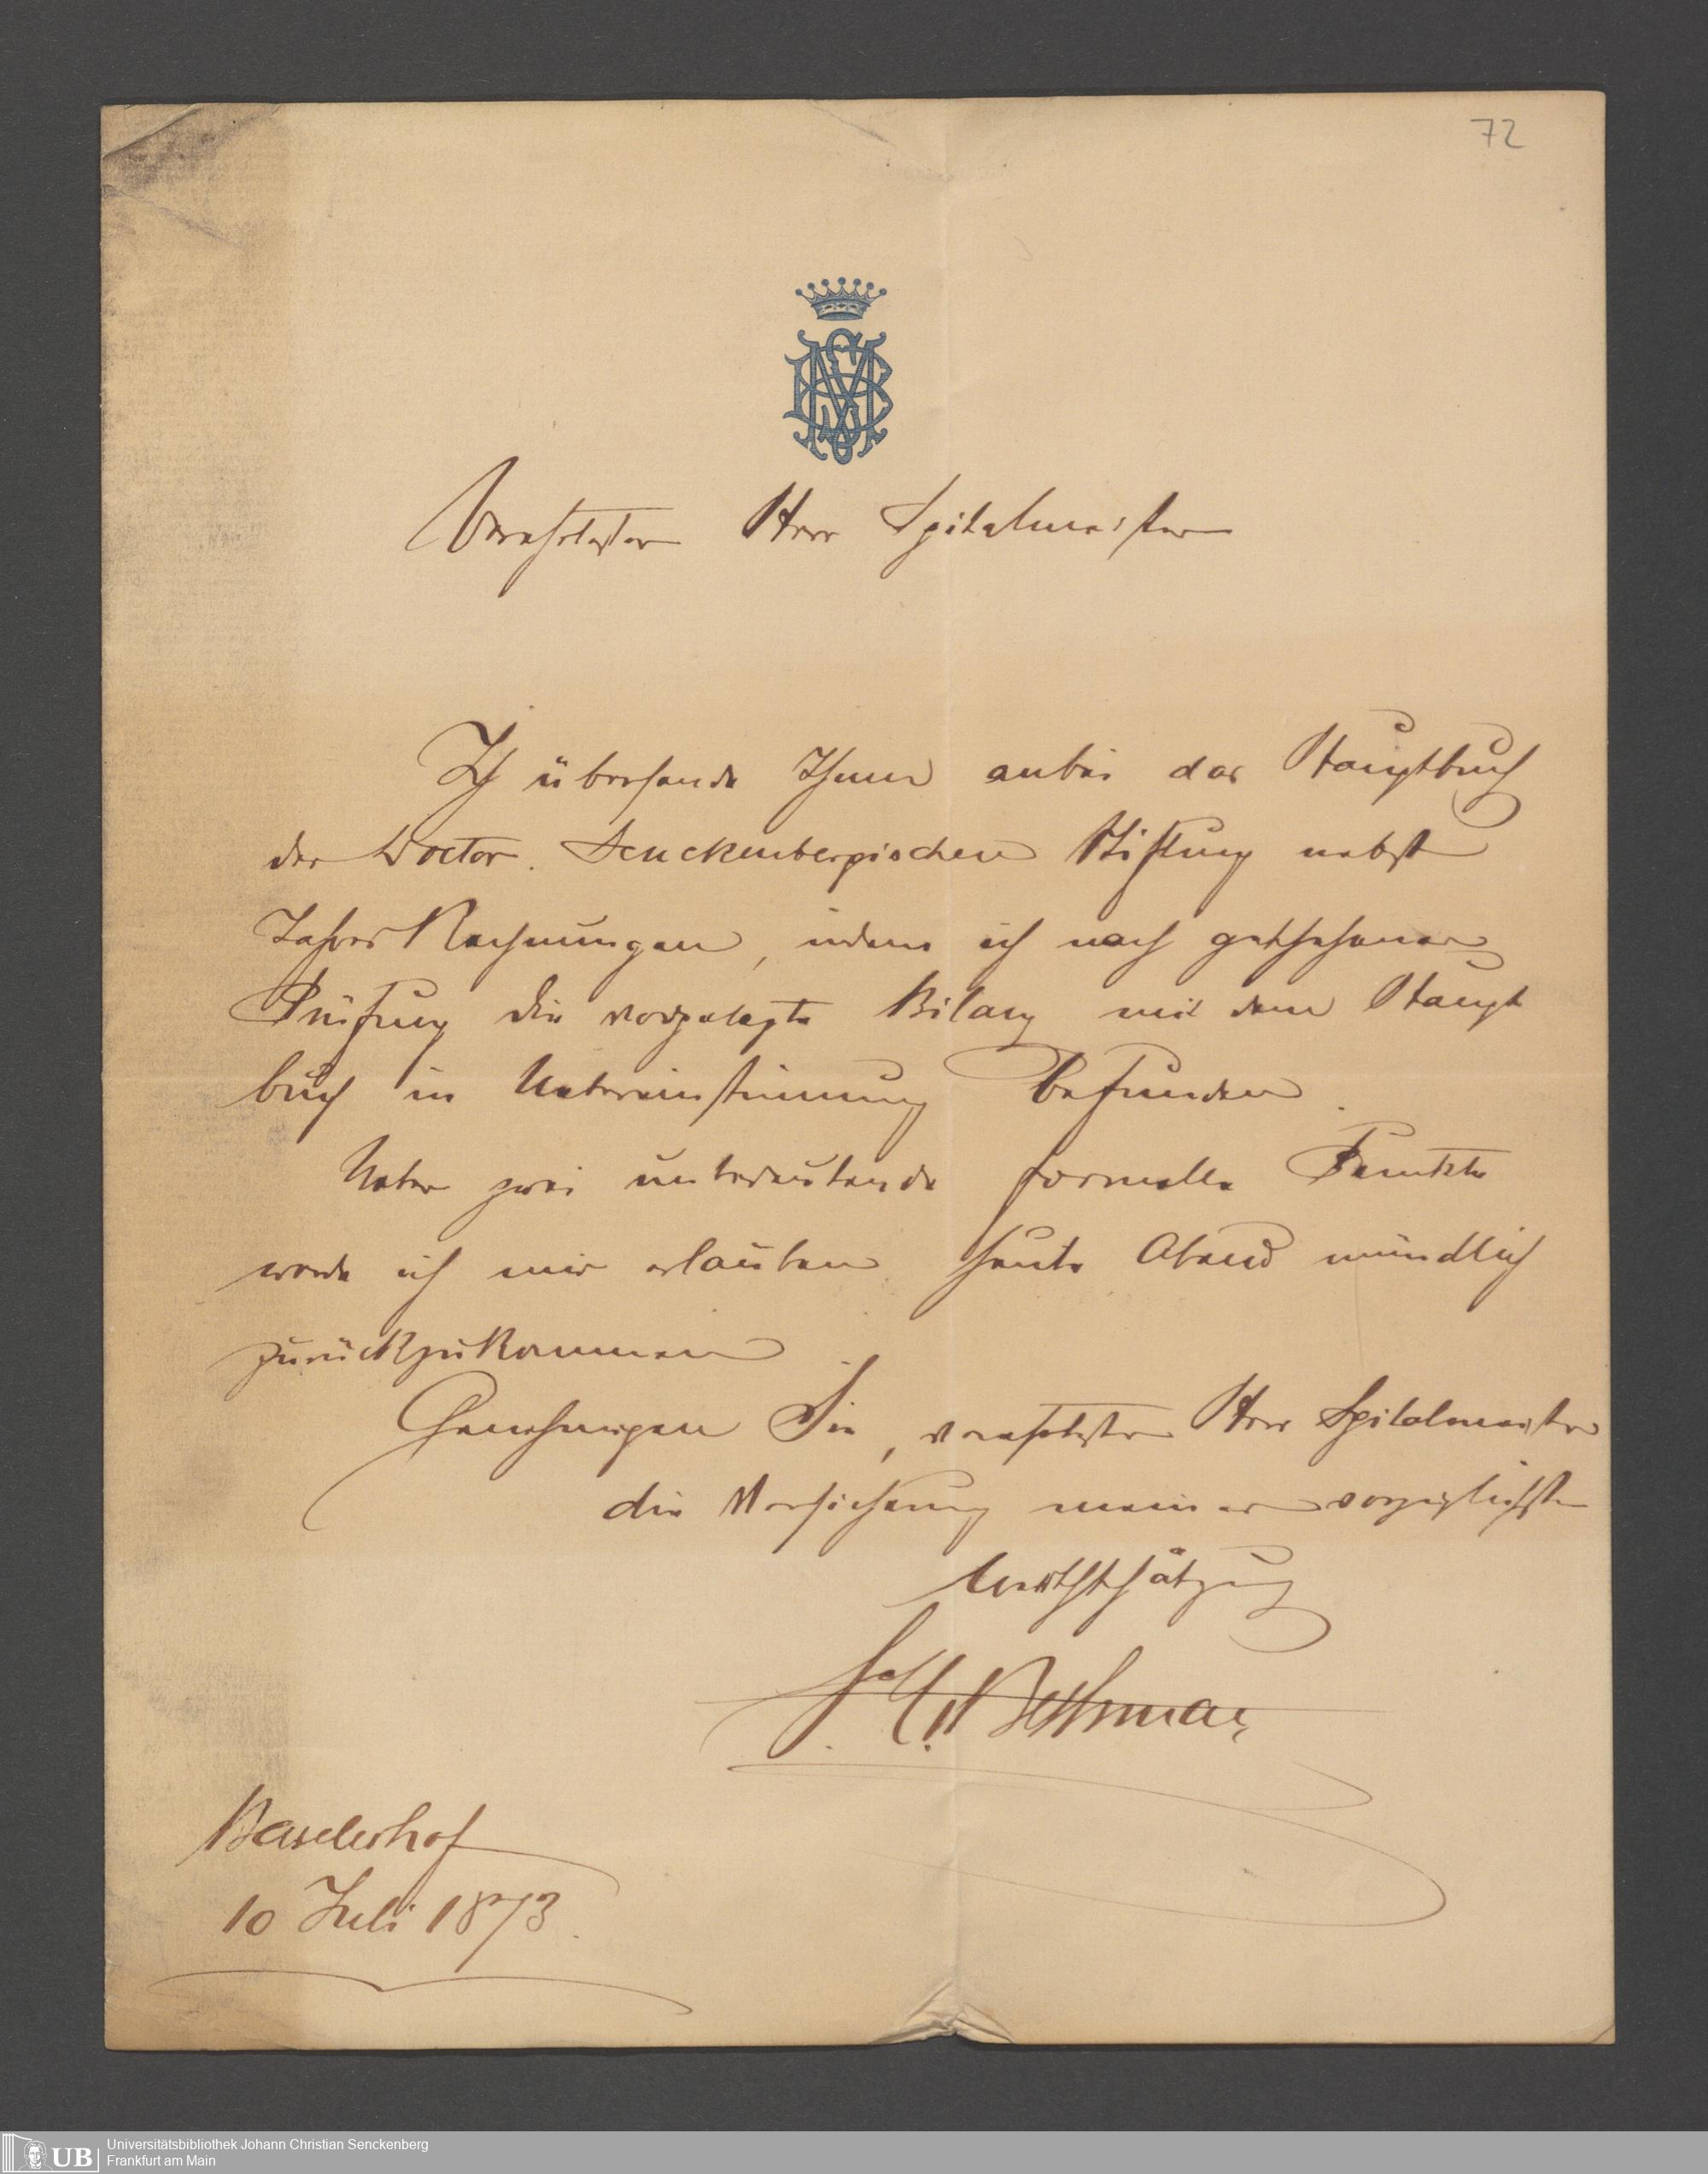 72
Verehrtester Herr Spitalmeister
Ich übersende Ihnen anbei das Hauptbuch
der Doctor. Senckenbergischen Stiftung nebst
Jahres Rechnungen, indem ich nach geschehener
Prüfung die vorgelegte Bilanz mit dem Haupt
buch in Uebereinstimmung befunden.
Ueber zwei unbedeutende formelle Punkte
werde ich mir erlauben heute Abend mündlich
zurückzukommen
Genehmigen Sie, verehrtester Herr Spitalmeister
die Versicherung meiner vorzüglichsten
Werthschätzung
Bethman
Baselerhof
10 Juli 1873.
UB Universitätsbibliothek Johann Christian Senckenberg
Frankfurt am Main